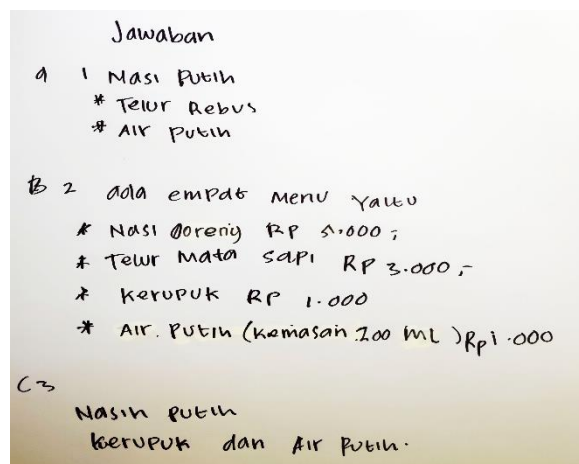 Jawaban
a 1 Nasi Putih
* Telur Rebus
* Air Putih
B 2 ada empat Menu Yaitu
* Nasi Goreng RP 5.000,-
* Telur Mata Sapi RP 3.000,-
* Kerupuk RP 1.000
* Air. Putih (Kemasan 200 ML) Rp1.000
C 3
Nasih Putih
Kerupuk dan Air Putih.